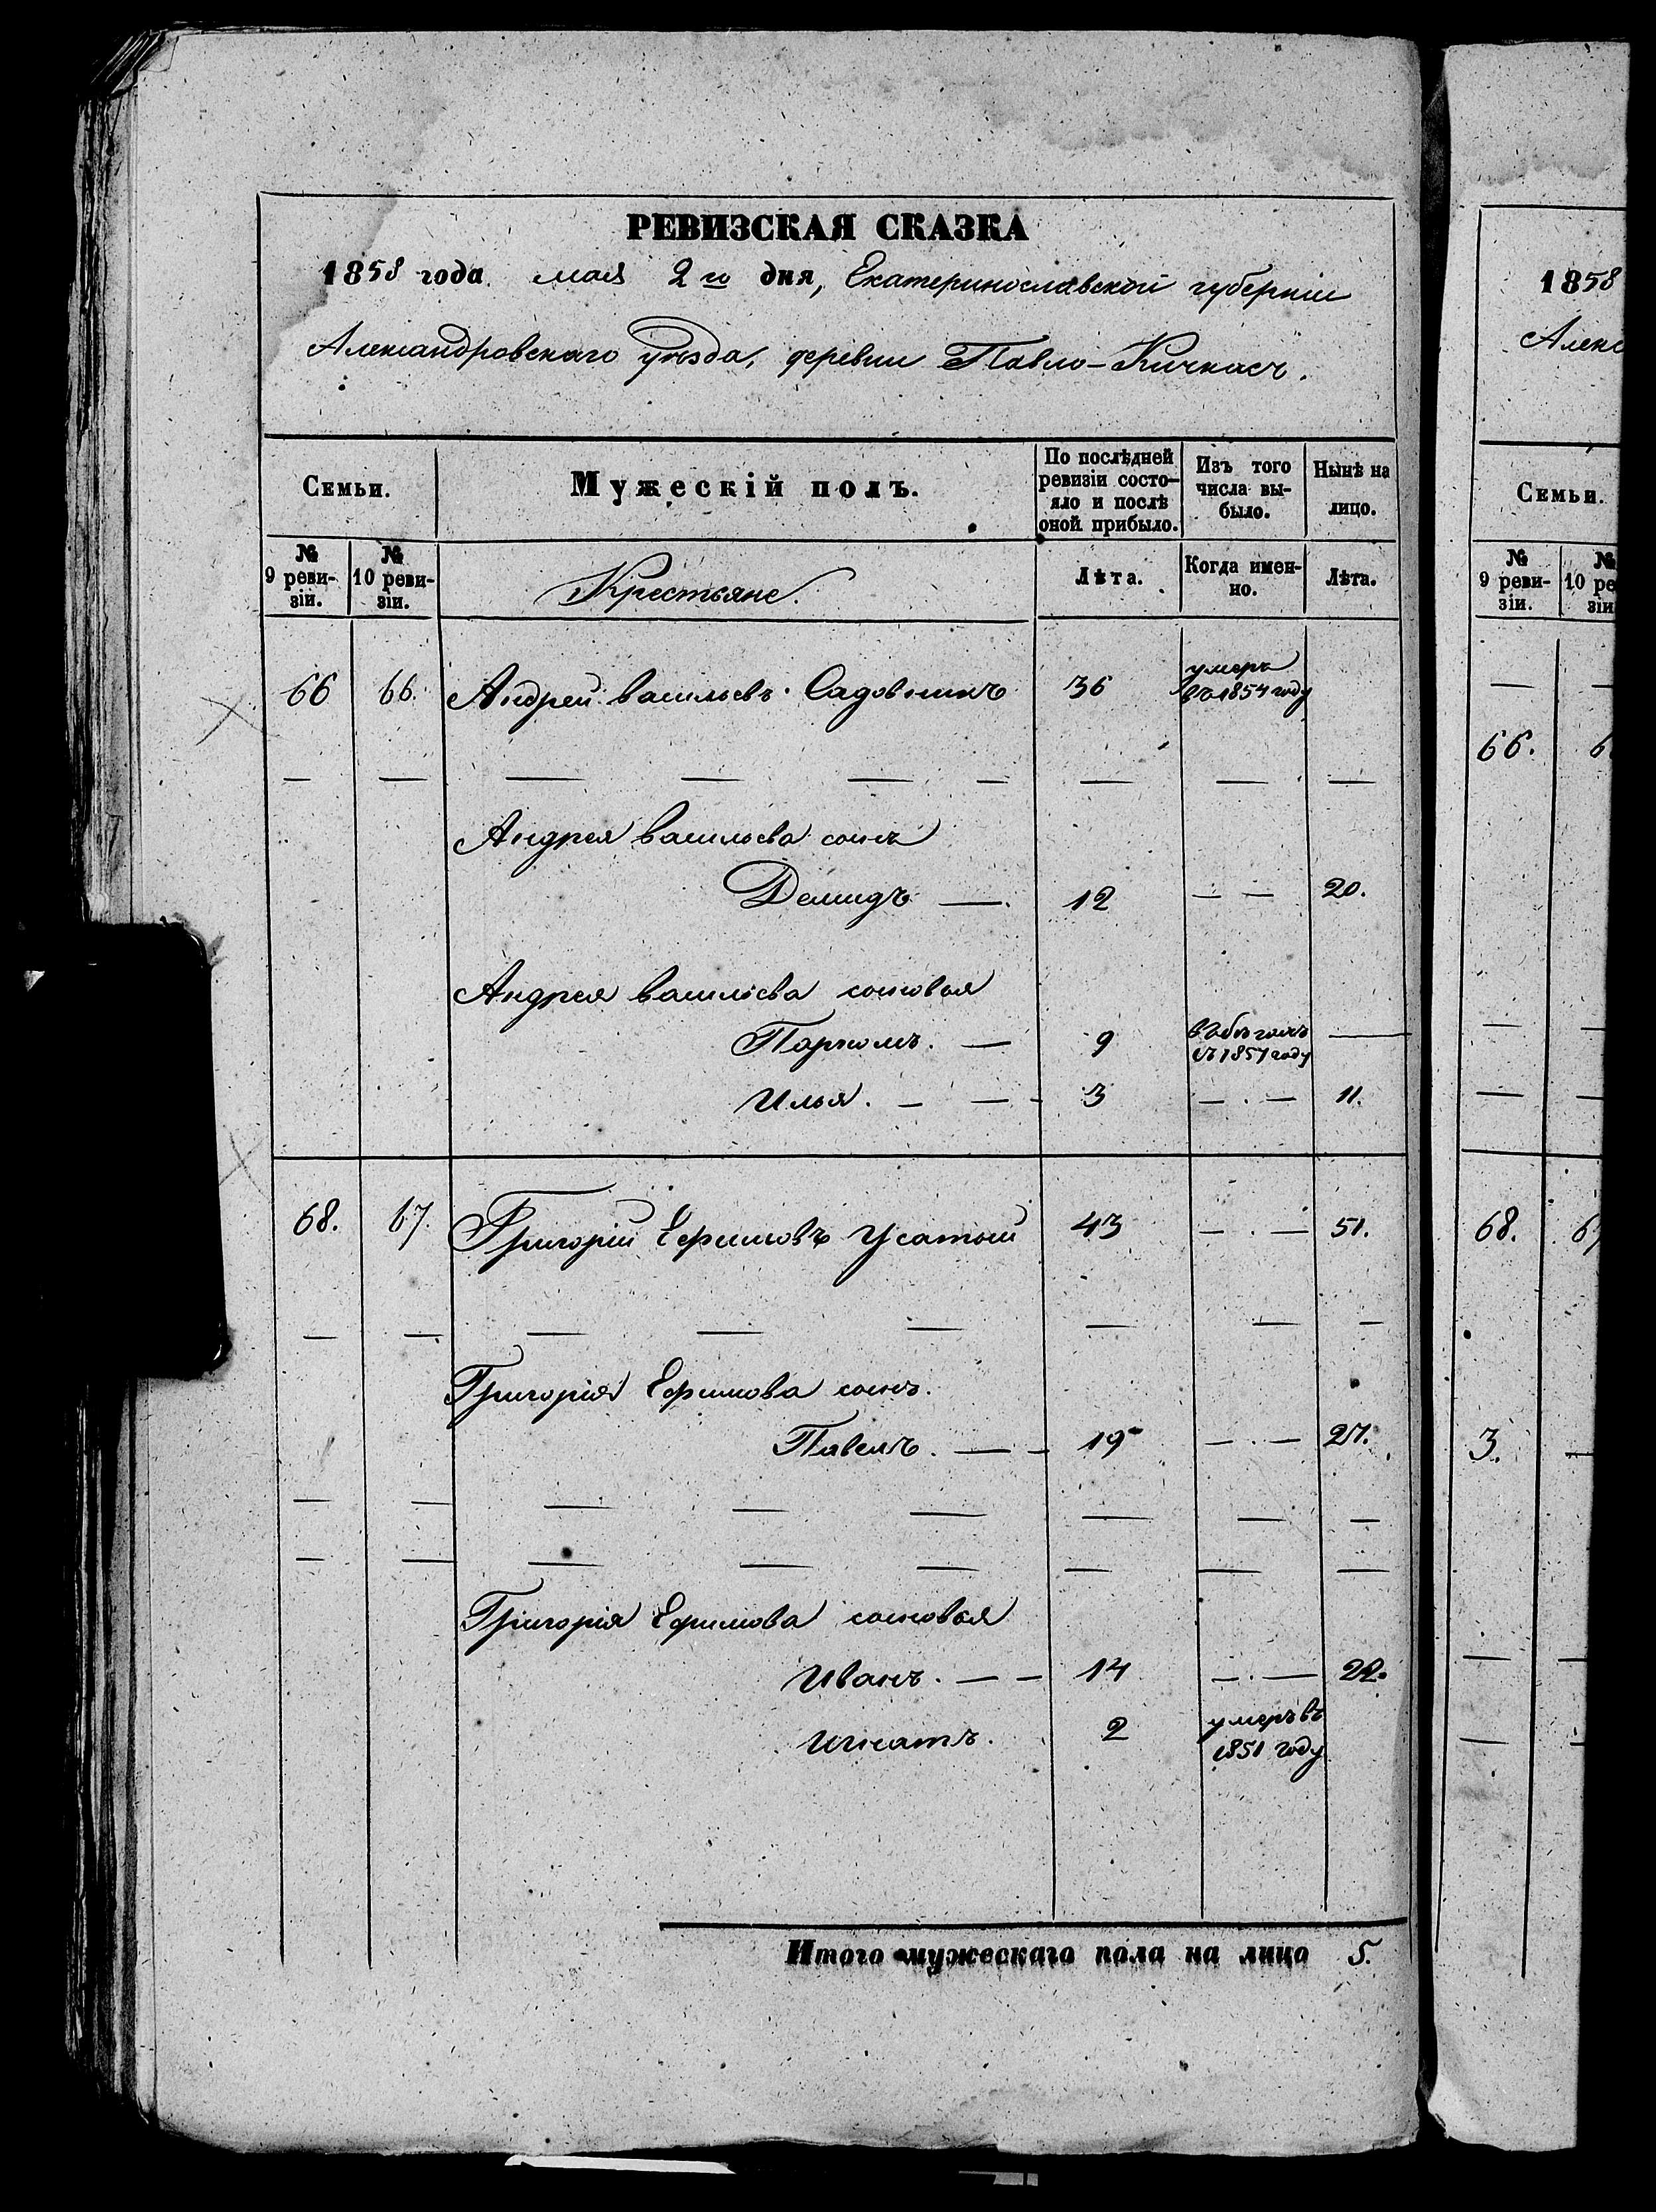 РЕВИЗСКАЯ СКАЗКА
1858 года мая 2го дня, Екатеринославской губерніи
Александровскаго уѣзда, деревни Павло-Кичкасъ.
Семьи.
Мужескій полъ.
По послѣдней ревизіи состо-
яло и послѣ оной прибыло.
Изъ того числа вы-
было.
Нынѣ на лицо.
№ 9 реви-
зіи.
№ 10 реви-
зіи.
Крестьяне.
Лѣта.
Когда имен-
но.
Лѣта.
66 66. Андрей Васильевъ Садовникъ 36 умеръ въ 1854 году
— — — — — — — — —
Андрея Васильева сынъ
Демидъ — 12 — — 20.
Андрея Васильева сыновья
Пархомъ. — 9 въ бѣгахъ съ 1857 году —
Илья. — — - 3 — . — 11.
68. 67. Григорій Ефимовъ Усатый 43 — . — 51.
— — — — — — — —
Григорія Ефимова сынъ.
Павелъ. — - 19 — . — 27.
— — — — — — — —
— — — — — — — —
Григорія Ефимова сыновья
Иванъ. — — 14 — . — 22.
Игнатъ. 2 умеръ въ 1851 году
Итого мужескаго пола на лицо 5.
1858
Алекс
Семьи.
№ 9 реви-
зіи.
№ 10 ре
зіи
— —
66. 6
— —
— —
68. 67
3. —
— —
— -